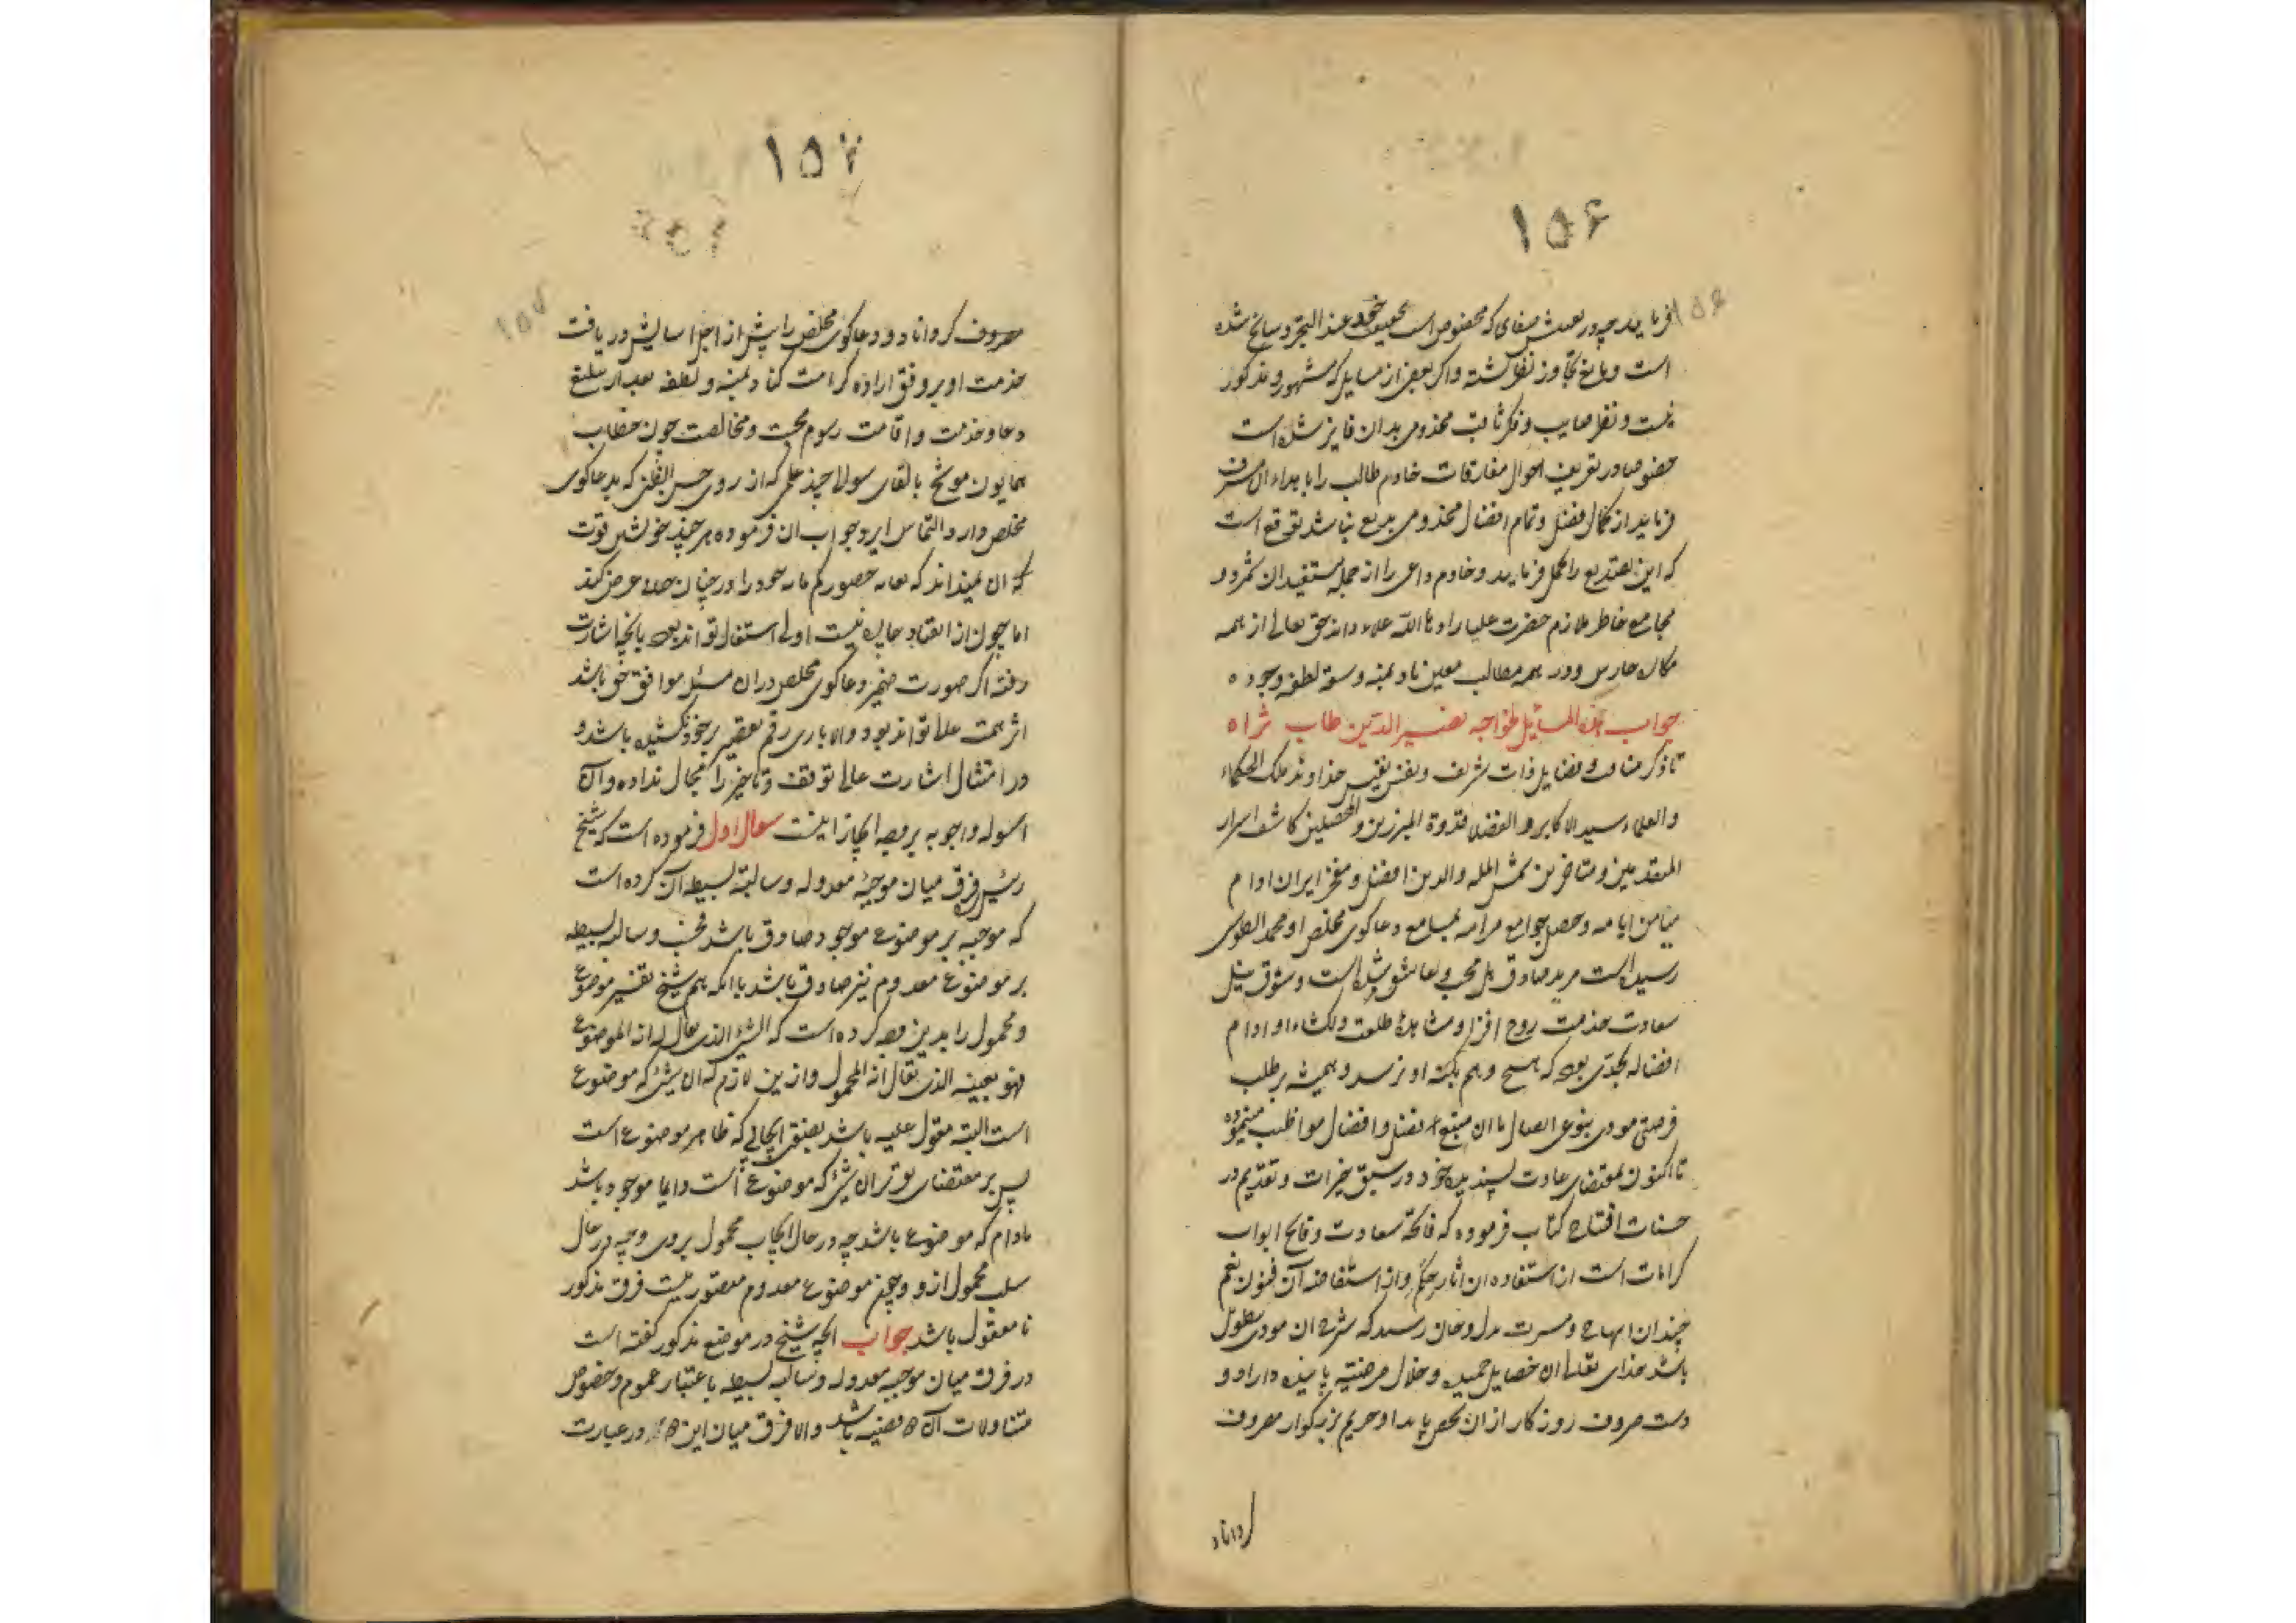 ۱۵۶
است و مانع تجاوز نظر گشته و اگر بعضی از مسایل که مشهور و مذکور
نیست و نظر صایب و فکر ثاقب مخدومی بدان فایز شده است
خصوصا در تعریف احوال مفارقات خادم طالب را باهداء آن مشرف
فرماید از کمال فضل و تمام افضال مخدومی بدیع نباشد توقع است
که این تصدیع را تحمل فرماید و خادم داعی را از جمله مستفیدان شمرد و
حق تعالی از همه
مکاره حارس و در همه مطالب معین باد بمنه و سعة لطفه وجوده
جواب هذه المسائل لخواجه نصیر الدین طاب ثراه
تا ذکر مناقب و فضایل ذات شریف و نفس نفیس خداوند ملک الحکماء
والعلماء سید الاکابر و الفضلا قدوة المبرزین و المحصلین کاشف اسرار
المتقدمین و متاخرین شمس المله والدین افضل و مفخر ایران ادام
میامن ایامه و حصل جوامع مرامه بمسامع دعاکوی مخلص او محمد الطوسی
رسیده است مرید صادق بل محب و عاشق شده است و شوق نیل
سعادت خدمت روح افزا و مشاهدهٔ طلعت دلکشاء او ادام
افضاله بحدی بوده که هیچ وهم بکنه او نرسد و همیشه بر طلب
فرصتی مودی بنوعی اتصال با آن منبع فضل و افضال مواظبت مینموده
تا اکنون بمقتضای عادت پسندیده خود در سبق خیرات و تقدیم در
حسنات افتتاح کتاب فرموده که فاتحهٔ سعادت و فاتح ابواب
کرامات است از استفاده آن اثار حکم و از استفاضه آن فنون نعم
چندان ابهاج و مسرت بدل و جان رسید که شرح آن مودی بتطویل
باشد خدای تعالی آن خصایل حمیده و خلال مرضیه پاینده داراد و
دست صروف روزکار از آن شخص پاید او حریم بزرکوار مصروف
کرداناد
۱۵۷
مصروف کرداناد و دعاکوی مخلص را پیش از اجل اسایش دریافت
خدمت او بر وفق اراده کرامت کناد بمنه و لطفه بعد از تبلیغ
دعا و خدمت و اقامت رسوم محبت و مخالصت چون خطاب
همایون موشح بالقای سوالی چند علمی که از روی حسن الظن که بدعاکوی
مخلص دارد التماس ایراد جواب آن فرموده هر چند خویش قوت
اما چون از انقیاد چاره نیست اولی استقبال تواند بود بانچه اشارت
رفته اگر صورت ضمیر دعاکوی مخلص در آن مسئله موافق حق باشد
اثر همت عالی تواند بود و الا باری رقم تقصیر بر خود نکشیده باشد و
در امتثال اشارت عالی توقف و تاخیر را مجال نداده و آن
اسوله و اجوبه بر وجه ایجاز اینست سوال اول فرموده است که شیخ
رئیس فرق میان موجبهٔ معدوله و سالبهٔ بسیطه آن کرده است
که موجبه بر موضوع موجود صادق باشد فحسب و سالبه بسیطه
بر موضوع معدوم نیز صادق باشد با آنکه هم شیخ تفسیر موضوع
و محمول را بدین وجه کرده است که الشئ الذی یقال له انه الموضوع
فهو بعینه الذی یقال انه المحمول و از این لازم که آن شئ که موضوع
است البته مقول علیه باشد بصدق ایجابی که ظاهر موضوع است
پس بر مقتضای آن شئ که موضوع است دایما موجود باشد
مادام که موضوع باشد چه در حال ایجاب محمول بر وی و چه در حال
سلب محمول ازو و چون موضوع معدوم متصور نیست فرق مذکور
نامعقول باشد جواب انچه شیخ در موضع مذکور گفته است
در فرق میان موجبه معدوله و سالبه بسیطه باعتبار عموم و خصوص
متناولات آن قضیه باشد و الا فرق میان این در عبارت